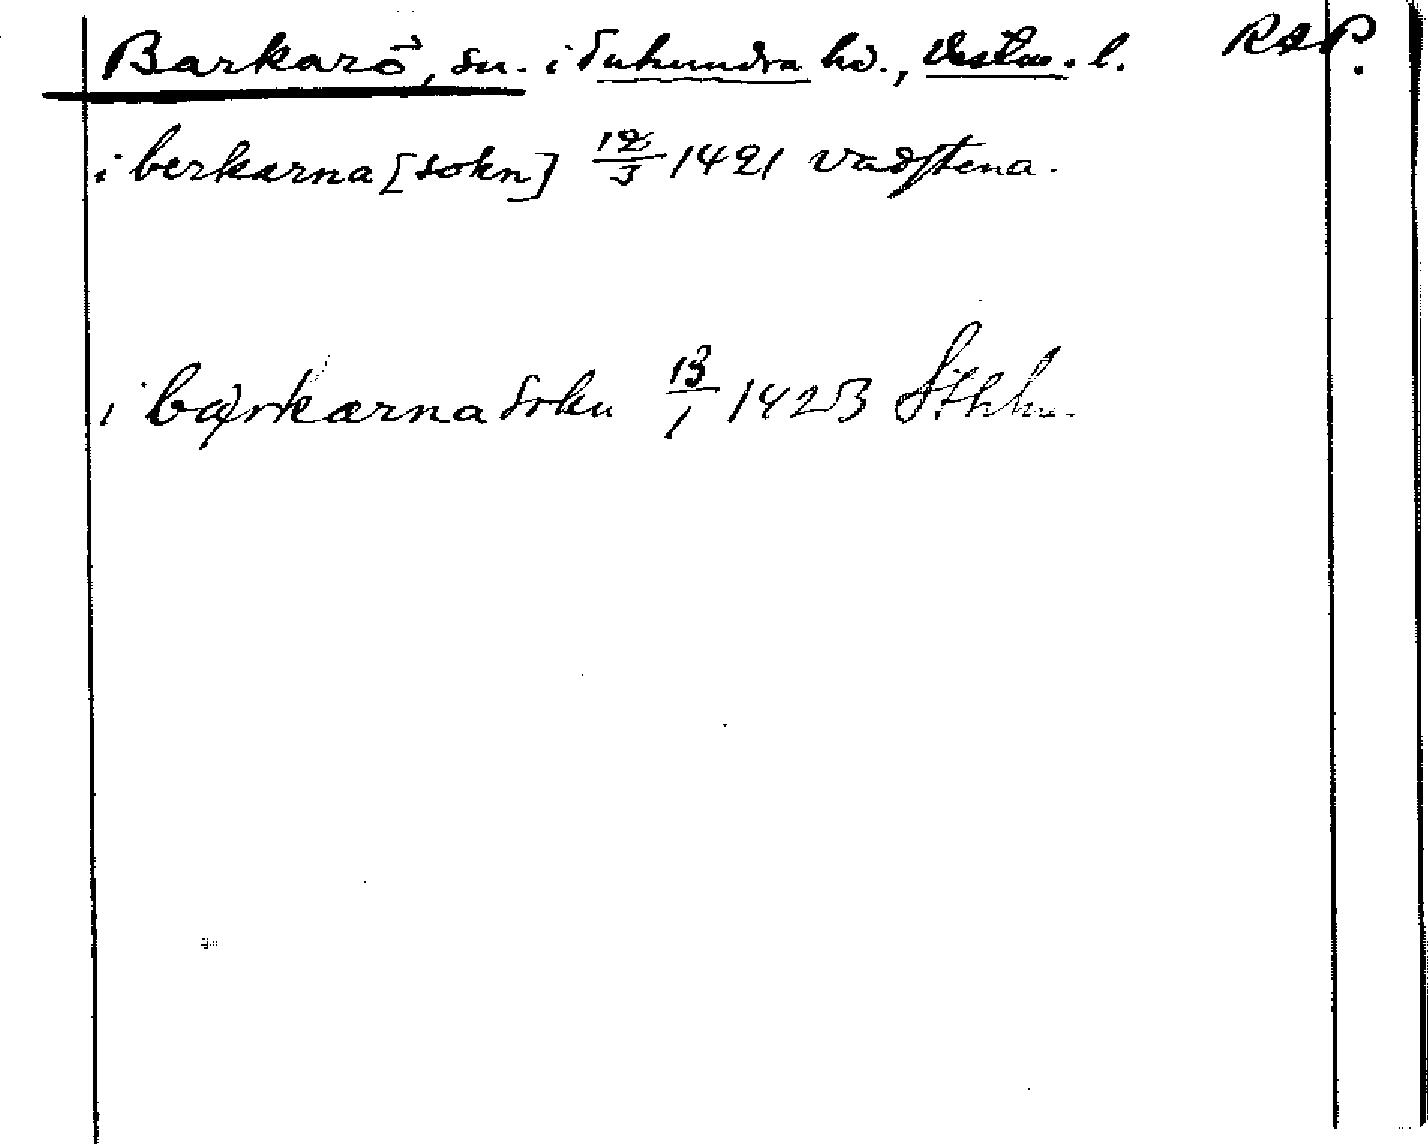 Barkarö, sn. i Tuhundra hd., Vestm. l. RAP.
i berkarna [sokn] 12/3 1421 Vadstena.
i bærkarna sokn 13/1 1423 Sthlm.